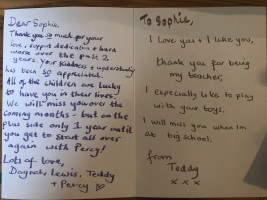 Dear Sophie,
Thank you so much for your
love, support dedication + hard
work over the past 2
years. Your kindness + understanding
has been so appreciated.
All of the children are lucky
to have you in their lives.
We will miss you over the
coming months - but on the
plus side only 1 year until
you get to start all over
again with Percy!
Lots of love,
Lewis, Teddy
+ Percy
To Sophie,
I Love you + I like you,
thank you for being
my teacher,
I especially like to play
with your boys.
I will miss you when Im
at big school.
from
Teddy
x x x